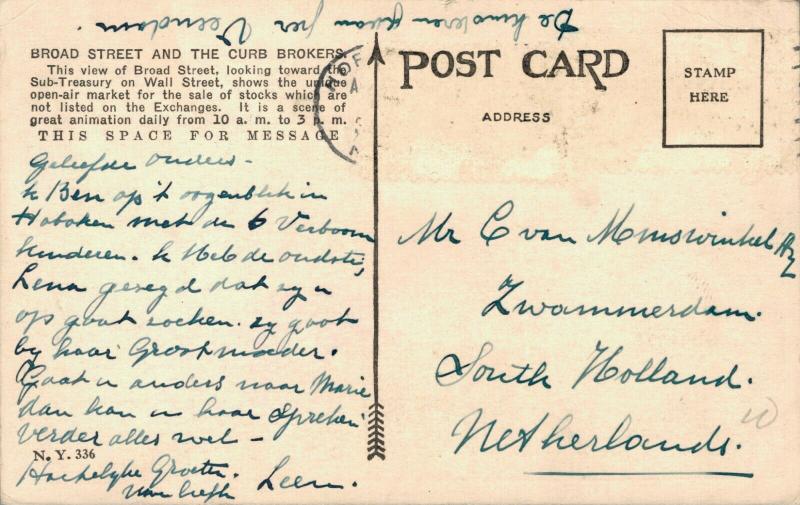 De kinderen gaan per Veendam.
BROAD STREET AND THE CURB BROKERS.
This view of Broad Street, looking toward the
Sub-Treasury on Wall Street, shows the unique
open-air market for the sale of stocks which are
not listed on the Exchanges. It is a scene of
great animation daily from 10 a. m. to 3 p. m.
THIS SPACE FOR MESSAGE
Geliefde ouders -
k Ben op 't oogenblik in
Hoboken met de 6 Verboom
kinderen. k Heb de oudste,
Lena gesegd dat zy u
op gaat zoeken. zy gaat
by haar Grootmoeder.
Gaat u anders naar Marie
dan kan u haar spreken
verder alles wel -
N. Y. 336
Hartelyke Groeten.
van liefh Leen.
POST CARD
ADDRESS
STAMP
HERE
Mr C van Menswinkel Az
Zwammerdam.
South Holland.
Netherlands.